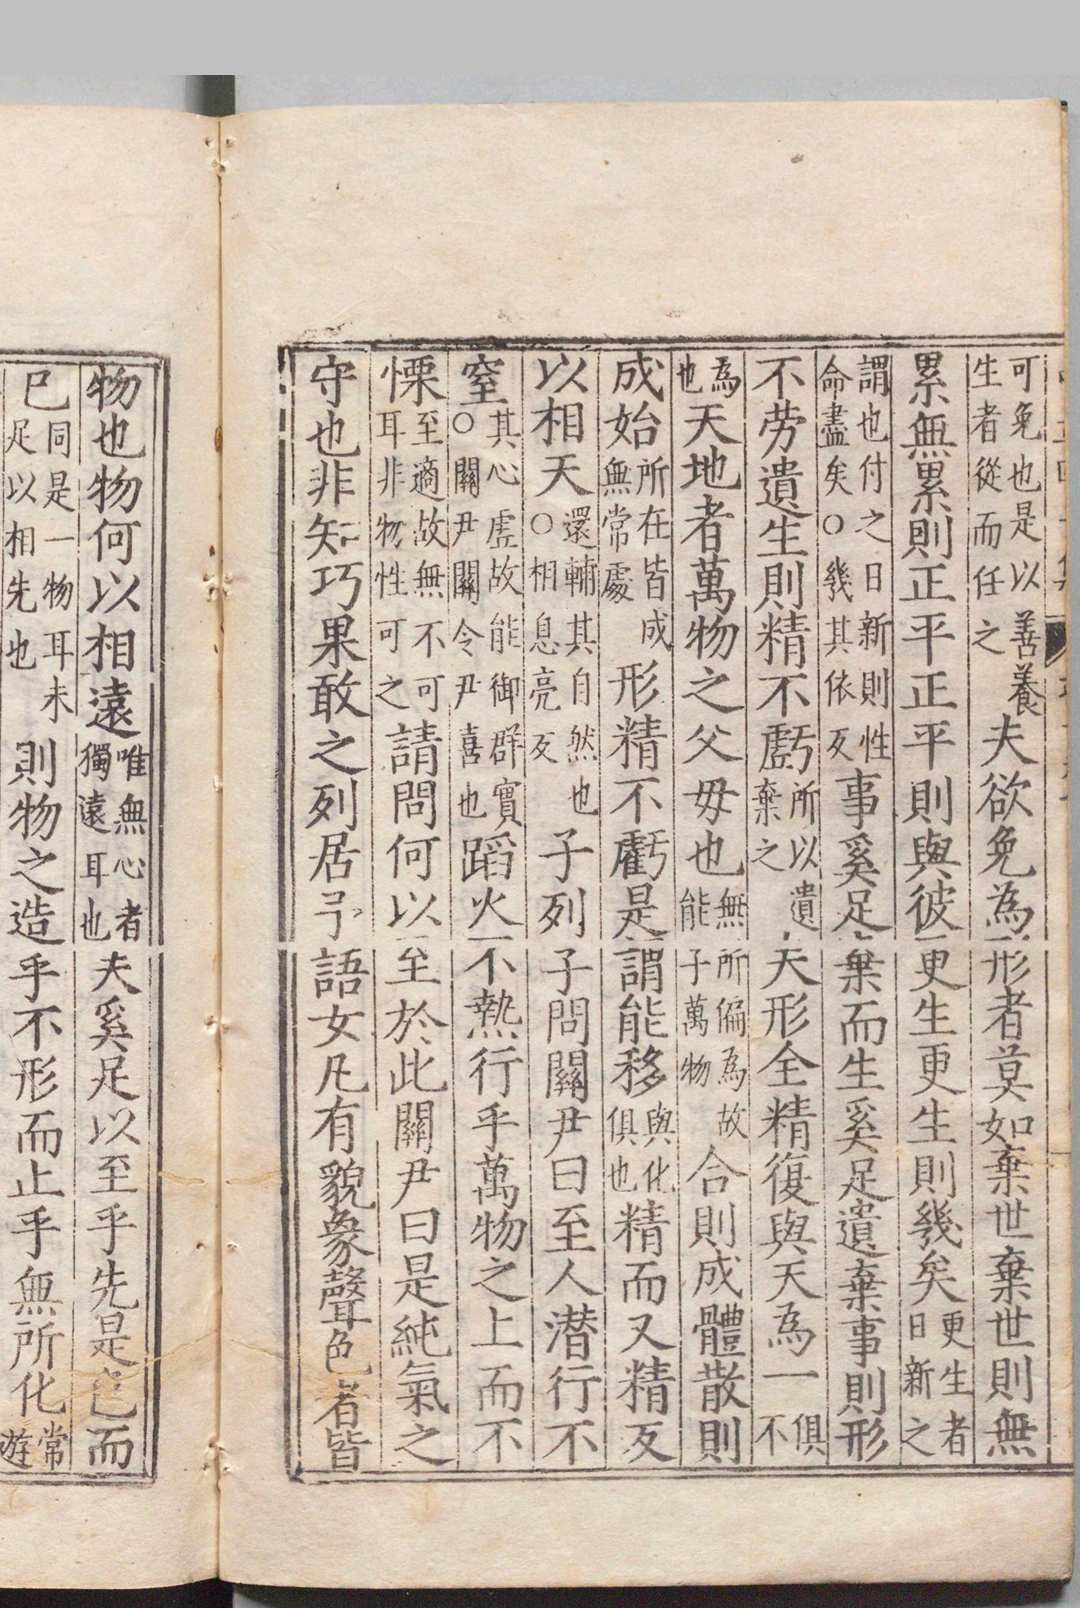 可免也是以善養生者從而任之夫欲免為形者莫如棄世棄世則無
累無累則正平正平則與彼更生更生則幾矣更生者日新之
謂也付之日新則性命盡矣○幾其依反事奚足棄而生奚足遺棄事則形
不劳遺生則精不虧所以遺棄之夫形全精復與天為一俱不
為也天地者萬物之父母也無所偏為故能子萬物合則成體散則
成始所在皆成無常處形精不虧是謂能移與化俱也精而又精反
以相天還輔其自然也○相息亮反子列子問關尹曰至人潜行不
窒其心虛故能御群實○關尹關令尹喜也蹈火不熱行乎萬物之上而不
慄至適故無不可耳非物性可之請問何以至於此關尹曰是純氣之
守也非知巧果敢之列居予語女凡有貌象聲色者皆
物也物何以相遠唯無心者獨遠耳也夫奚足以至乎先是色而
已同是一物耳未足以相先也則物之造乎不形而止乎無所化常遊